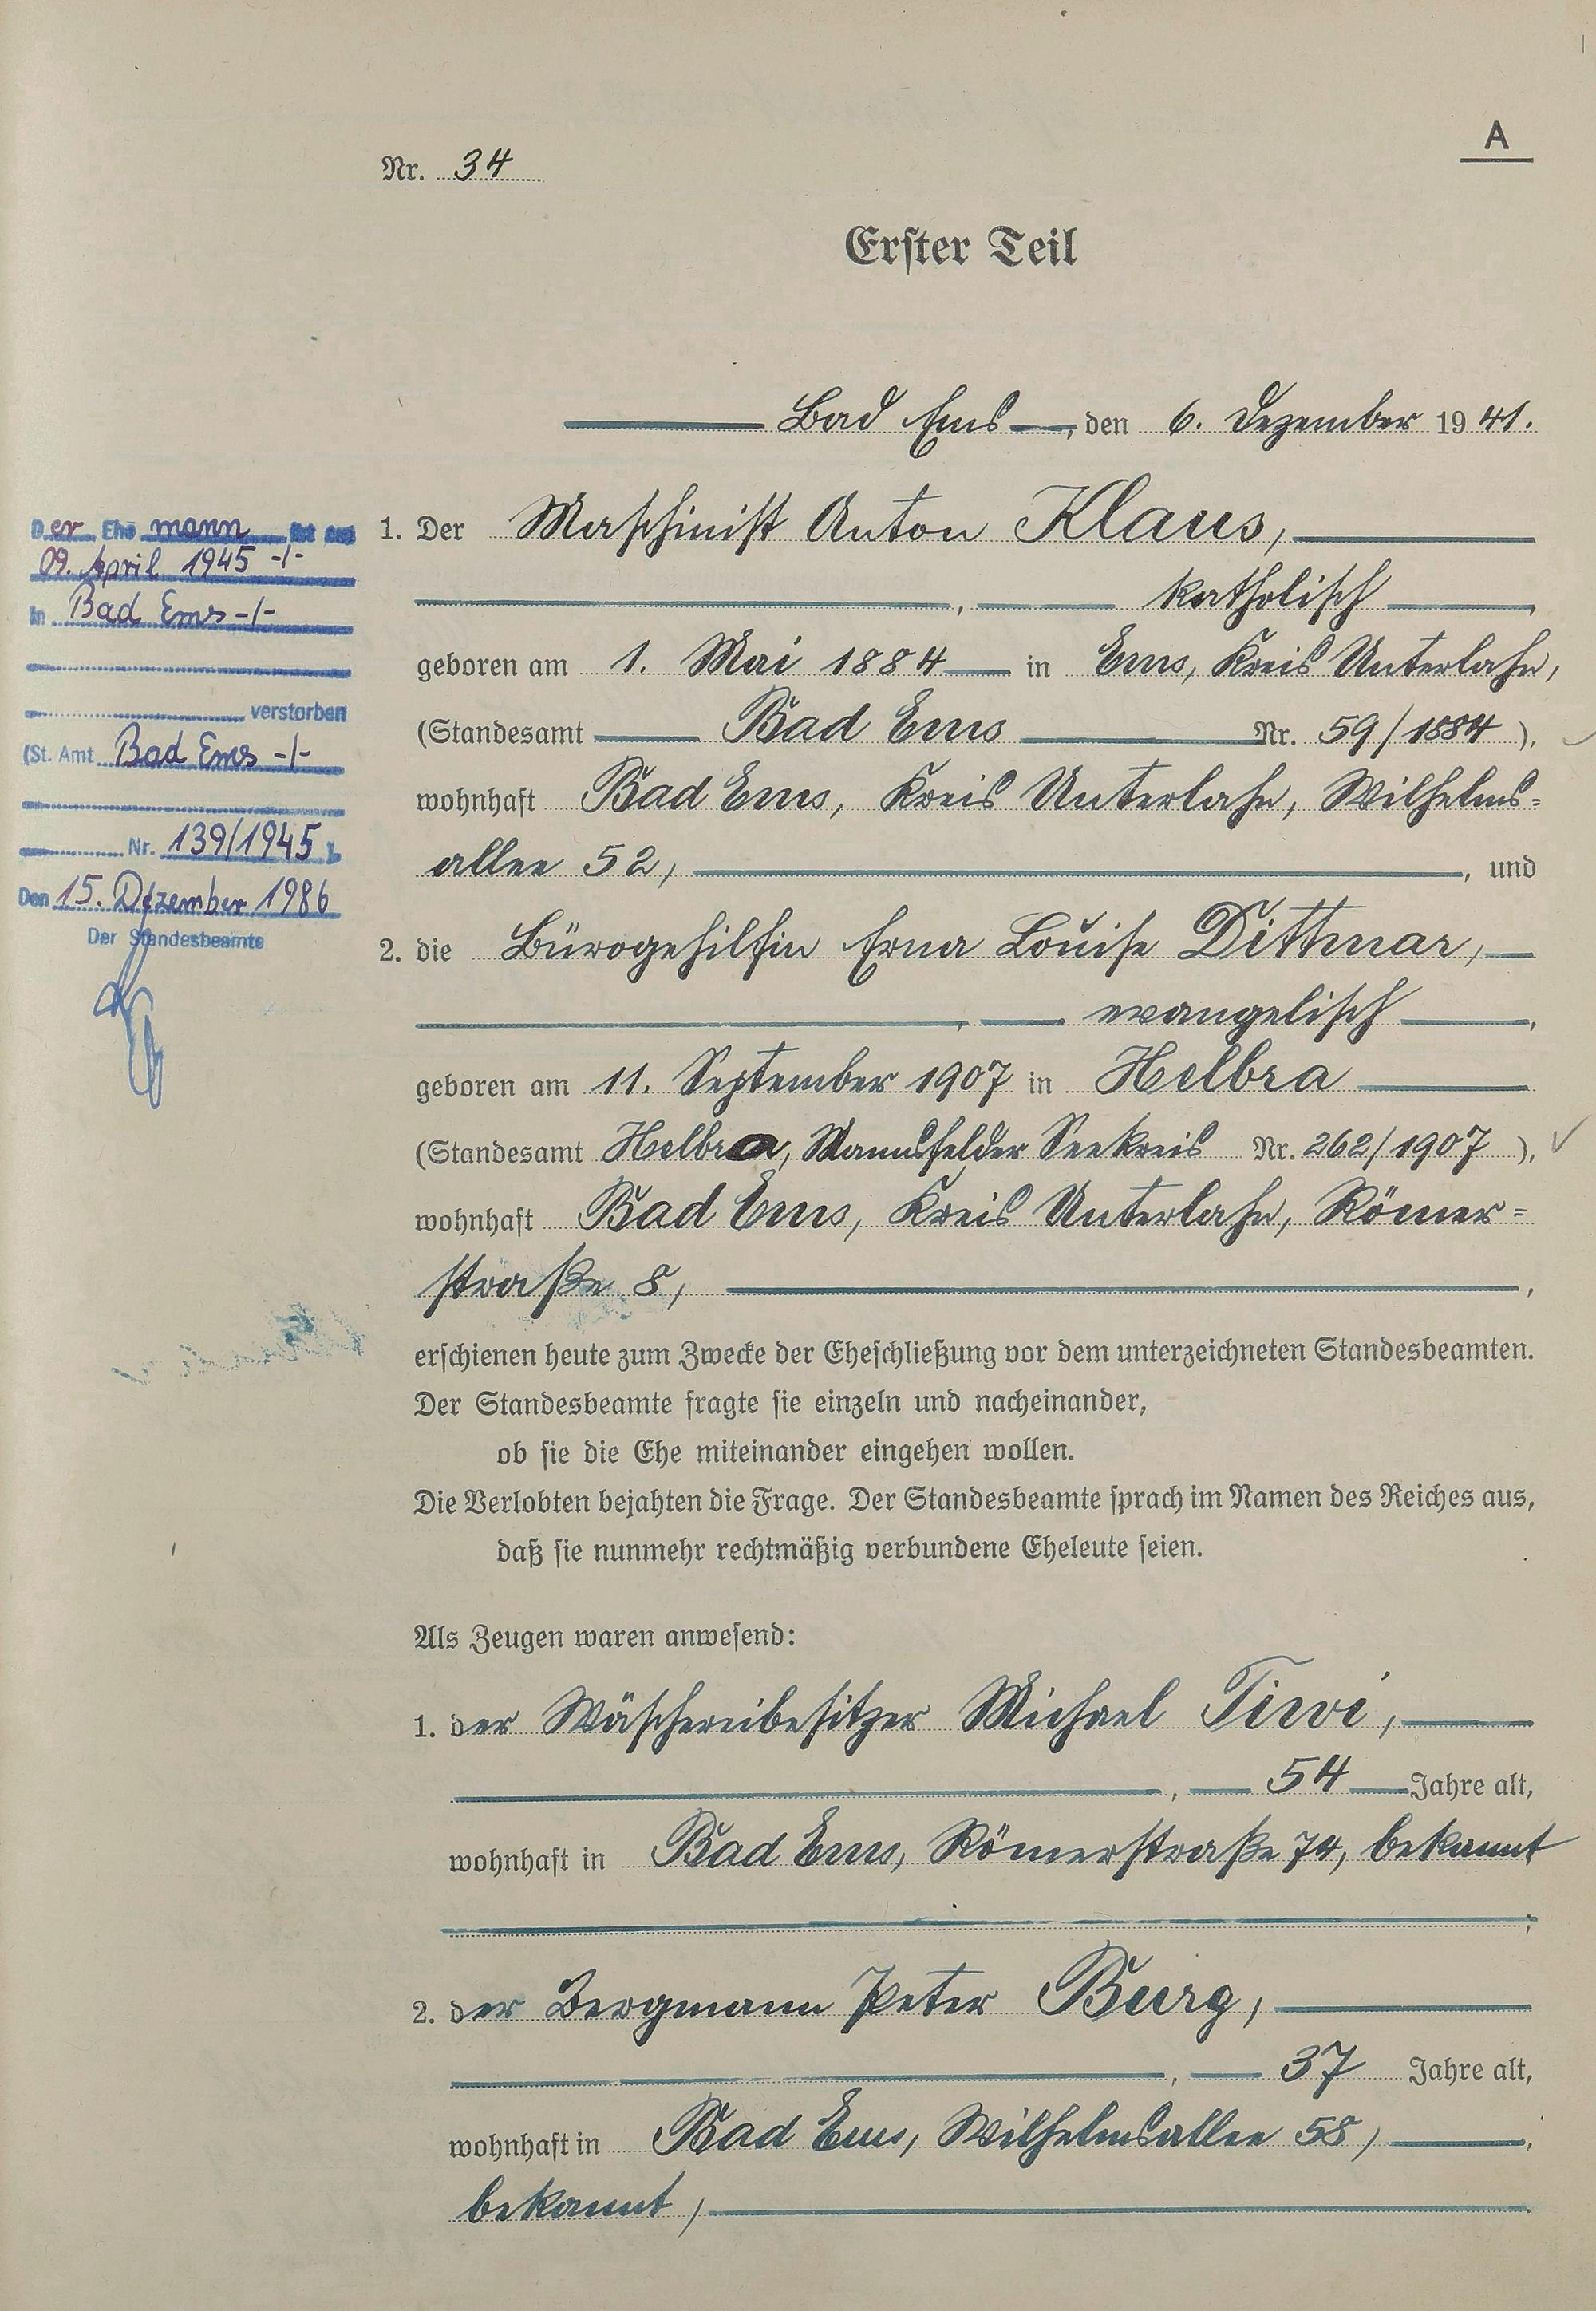 A
Nr. 34
Erster Teil
Bad Ems, den 6. Dezember 1941.
1. Der Maschinist Anton Klaus,
, katholisch,
geboren am 1. Mai 1884 in Ems, Kreis Unterlahn,
(Standesamt Bad Ems Nr. 59/1884),
wohnhaft Bad Ems, Kreis Unterlahn, Wilhelms=
allee 52, , und
2. die Bürogehilfin Erna Louise Dittmar,
, evangelisch,
geboren am 11. September 1907 in Helbra
(Standesamt Helbra, Mannsfelder Seekreis Nr. 262/1907),
wohnhaft Bad Ems, Kreis Unterlahn, Römer=
straße 8, ,
erschienen heute zum Zwecke der Eheschließung vor dem unterzeichneten Standesbeamten.
Der Standesbeamte fragte sie einzeln und nacheinander,
ob sie die Ehe miteinander eingehen wollen.
Die Verlobten bejahten die Frage. Der Standesbeamte sprach im Namen des Reiches aus,
daß sie nunmehr rechtmäßig verbundene Eheleute seien.
Als Zeugen waren anwesend:
1. der Wäschereibesitzer Michael Tirvi,
, 54 Jahre alt,
wohnhaft in Bad Ems, Römerstraße 74, bekannt
;
2. der Bergmann Peter Burg,
, 37 Jahre alt,
wohnhaft in Bad Ems, Wilhelmsallee 58, ,
bekannt,
Der Ehemann ist am
09. April 1945 -/-
in Bad Ems -/-
verstorben
(St. Amt Bad Ems -/-
Nr. 139/1945).
Den 15. Dezember 1986
Der Standesbeamte